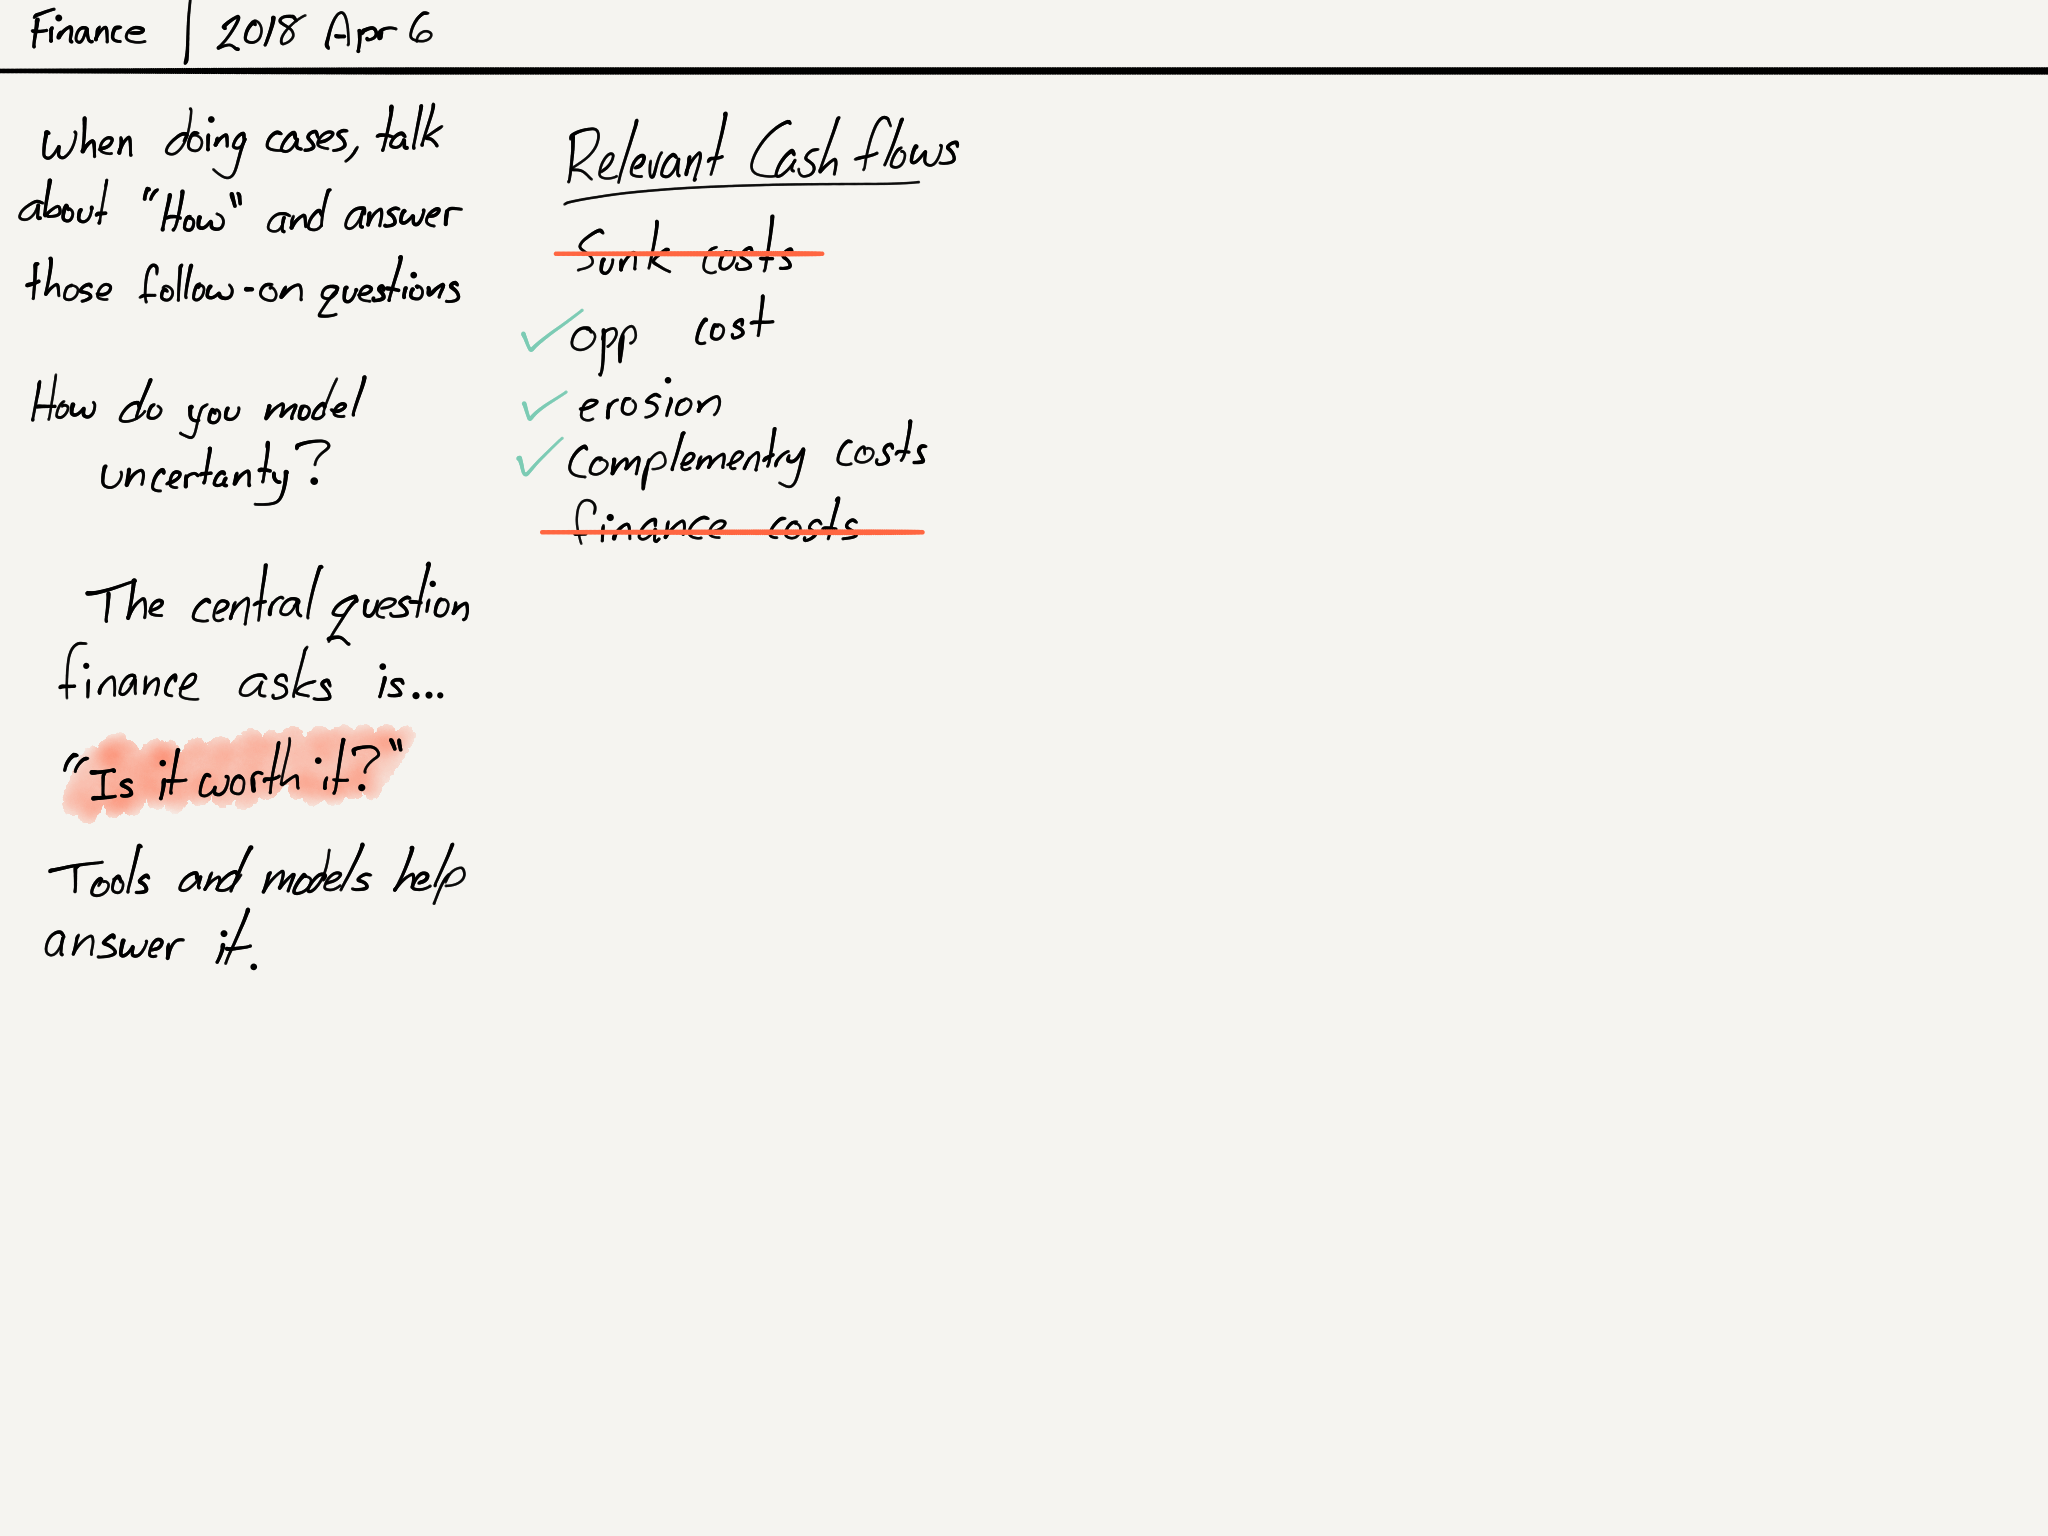 Finance | 2018 Apr 6
When doing cases, talk
about "How" and answer
those follow-on questions
How do you model
uncertanty?
The central question
finance asks is...
"Is it worth it?"
Tools and models help
answer it.
Relevant Cash flows
Sunk costs
✓ opp cost
✓ erosion
✓ Complementry costs
finance costs